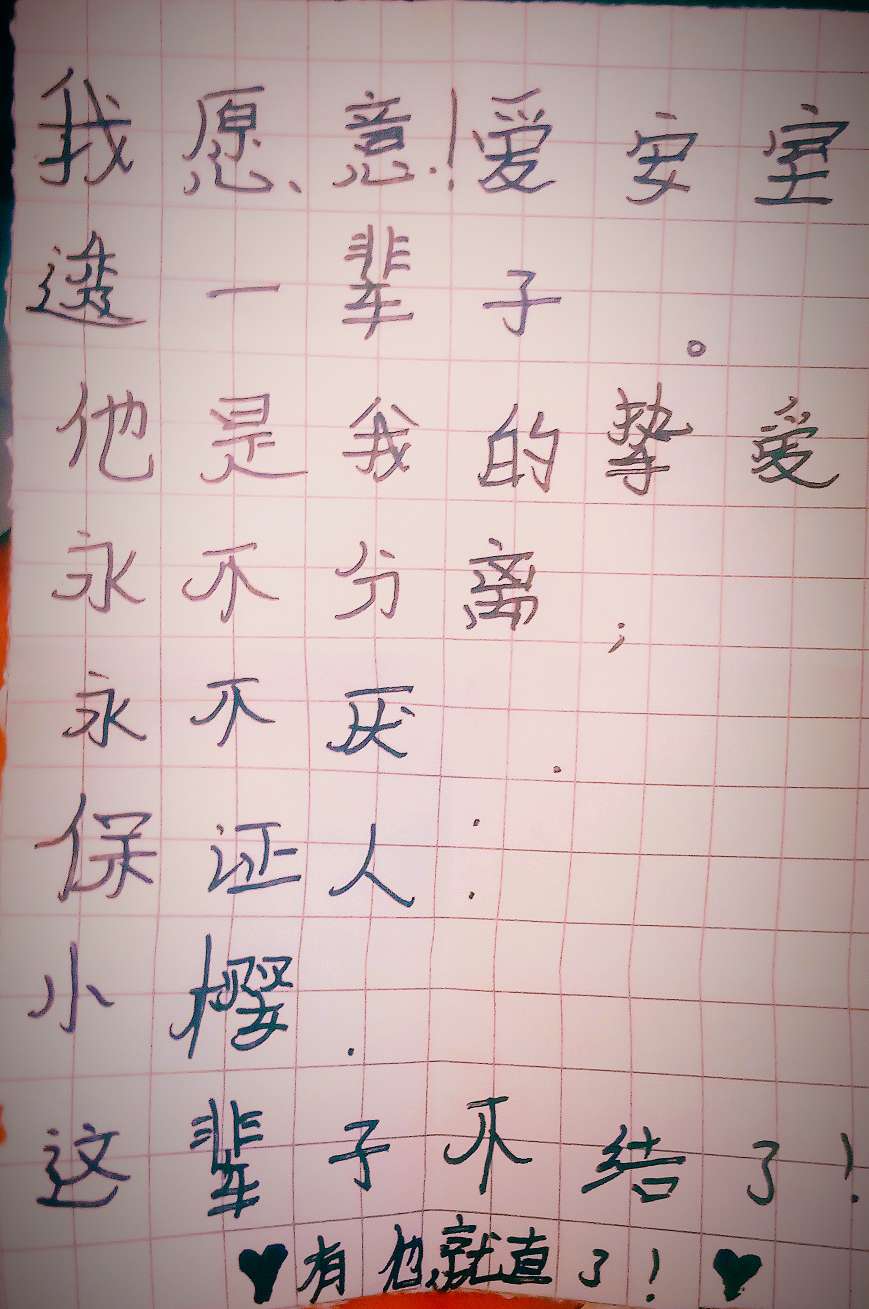 我愿意!爱安室
透一辈子。
他是我的挚爱
永不分离;
永不厌.
保证人:
小樱.
这辈子不结了!
♥有他就直了!♥